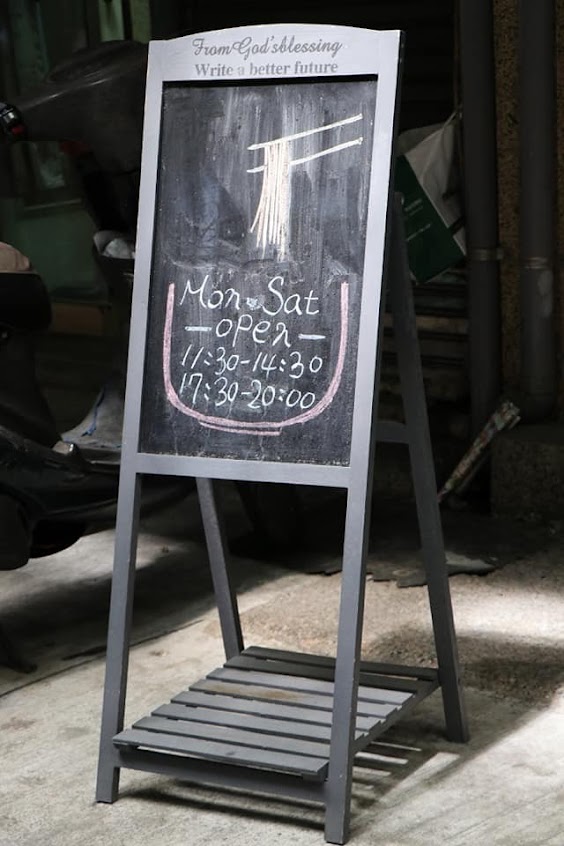 From God'sblessing
Write a better future
Mon-Sat
-open-
11:30-14:30
17:30-20:00